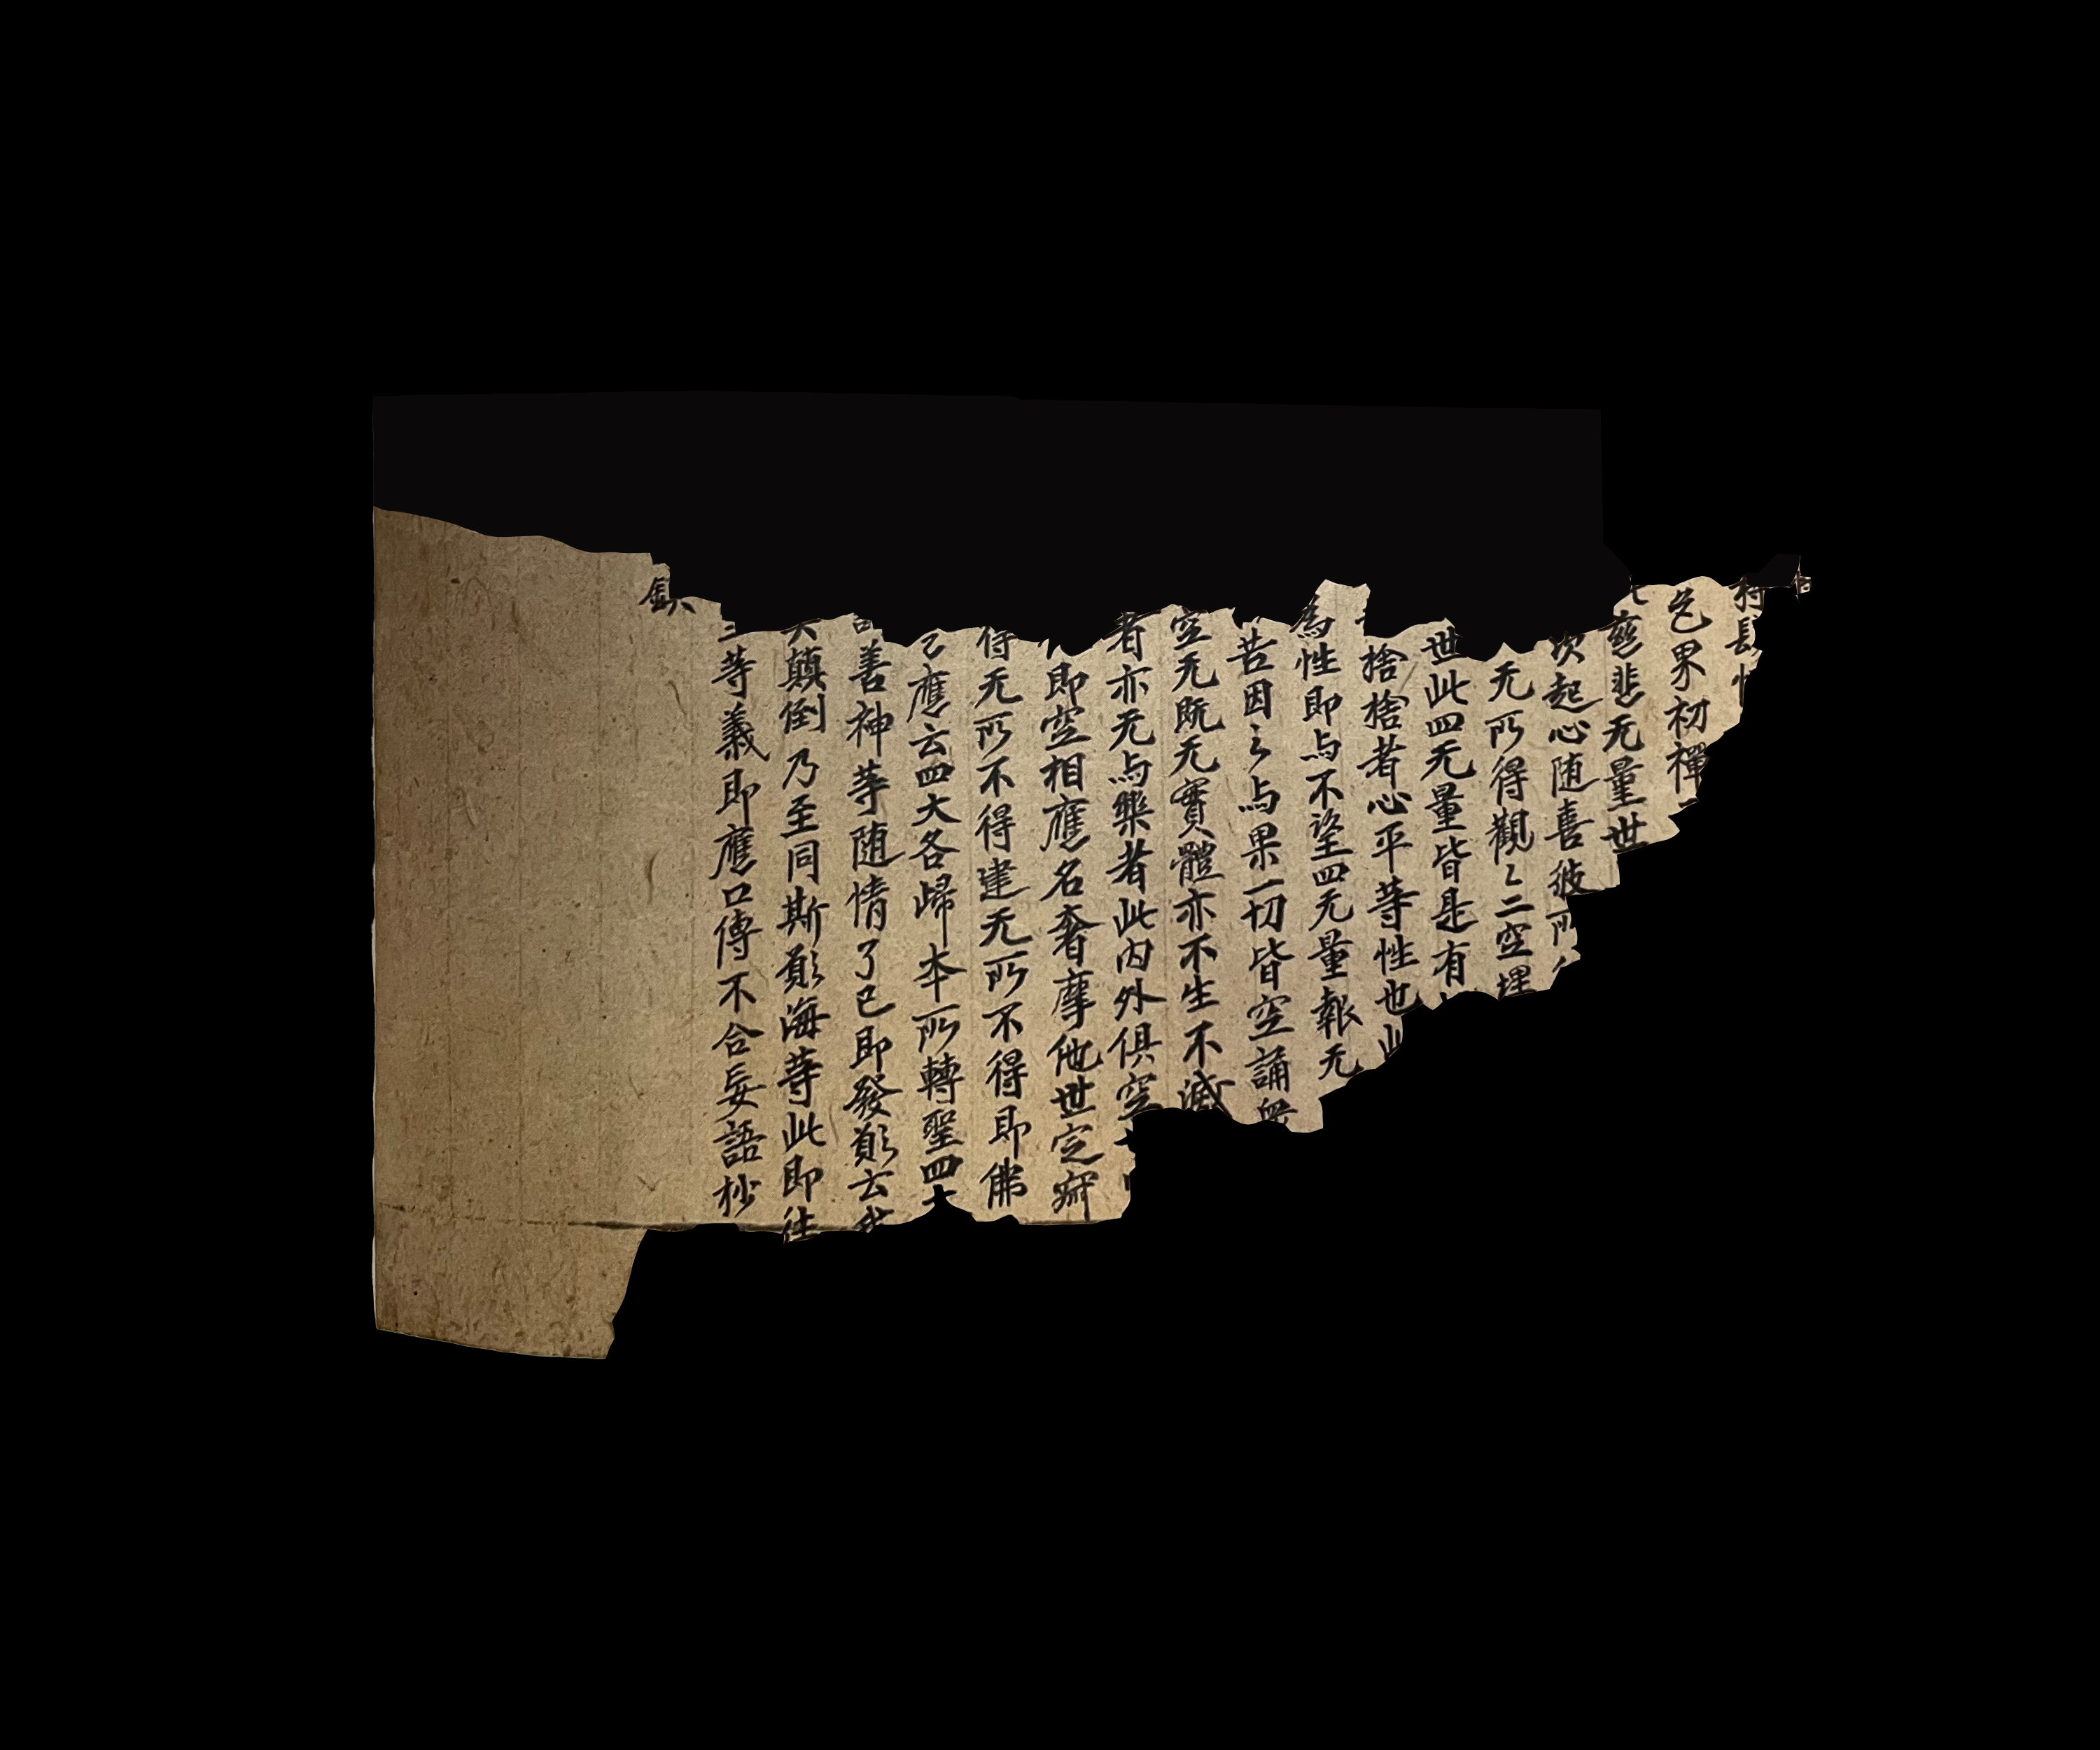 持髮
色界初禪
慈悲无量世
次起心随喜彼所
无所得觀〻二空理
世此四无量皆是有
捨捨者心平等性也此
為性即与不望四无量報无
苦因〻与果一切皆空誦
空无既无實體亦不生不滅
者亦无与樂者此内外俱空
即空相應名奢摩他世定
得无所不得逮无所不得即佛
已應云四大各歸本所轉聖四大
善神等随情了已即發願云
顛倒乃至同斯願海等此即往
三等義即應口傳不合妄語抄